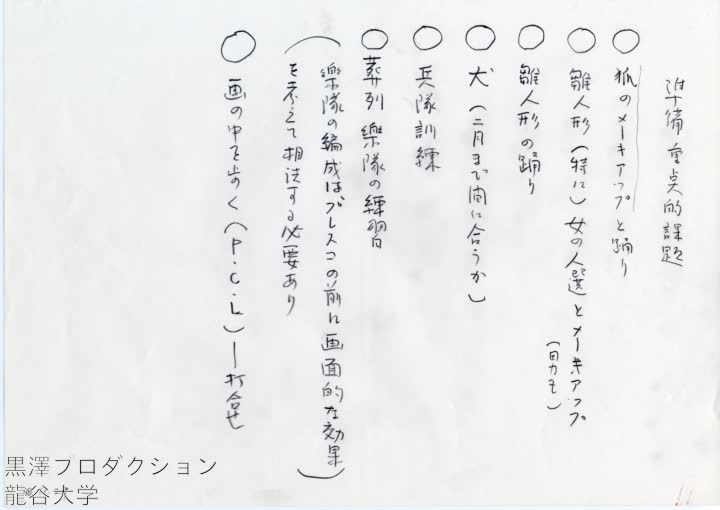 準備 重点的課題
○ 狐のメーキアップと踊り
○ 雛人形(特に)女の人選とメーキアップ
(男も)
○ 雛人形の踊り
○ 犬(二月まで間に合うか)
○ 兵隊訓練
○ 葬列 樂隊の練習
(樂隊の編成はプレスコの前に画面的な効果
を考えて相談する必要あり)
○ 画の中を歩く(P.C.L)―打合せ
黒澤プロダクション
龍谷大学